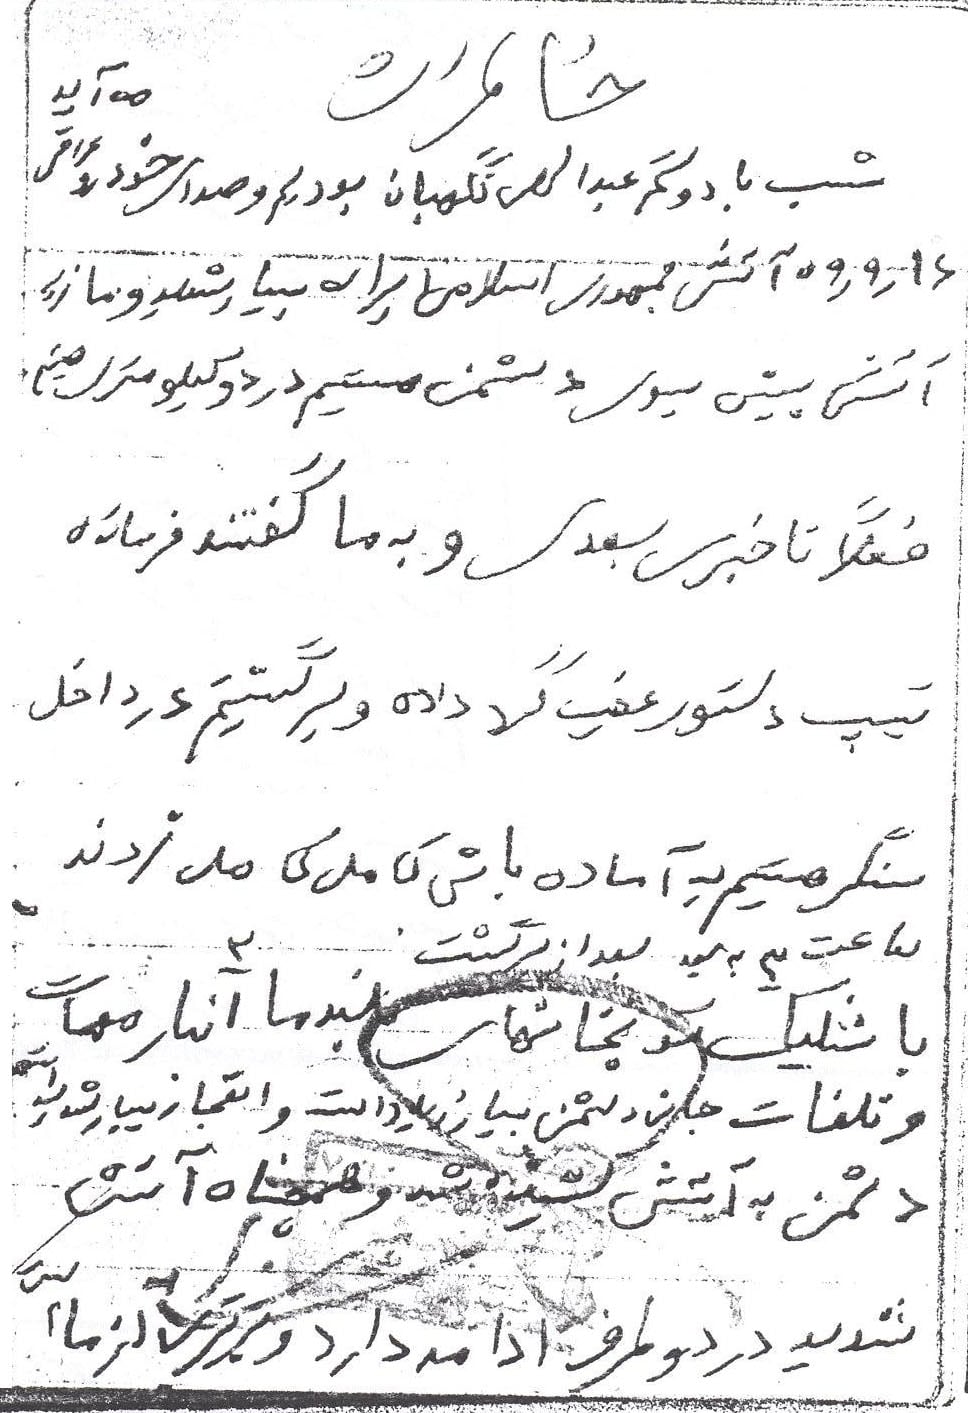 خاطرات
می آید
شب با دوکم عبدا نگهبان بودیم و صدای خودرو عراقی
۵۹٫۹٫۱۶ آتش جمهوری اسلامی ایران بسیار شدید و ما زیر
آتش پیش بسوی دشمن هستیم در دو کیلومتری هستیم
فعلاً تا خبری بعدی و به ما گفتند فرمانده
تیپ دستور عقب گرد داده و برگشتیم در داخل
سنگر هستیم به آماده باش کامل کامل زدند
ساعت ۳ به بعد بعد از برگشت
با شلیک توپخانهای ما انبار مهمات
و تلفات جانی دشمن بسیار زیاد داشت و انفجار بسیار شدید
دشمن به آتش کشیده شد و آتش
شدید در دو طرف ادامه دارد و از ما